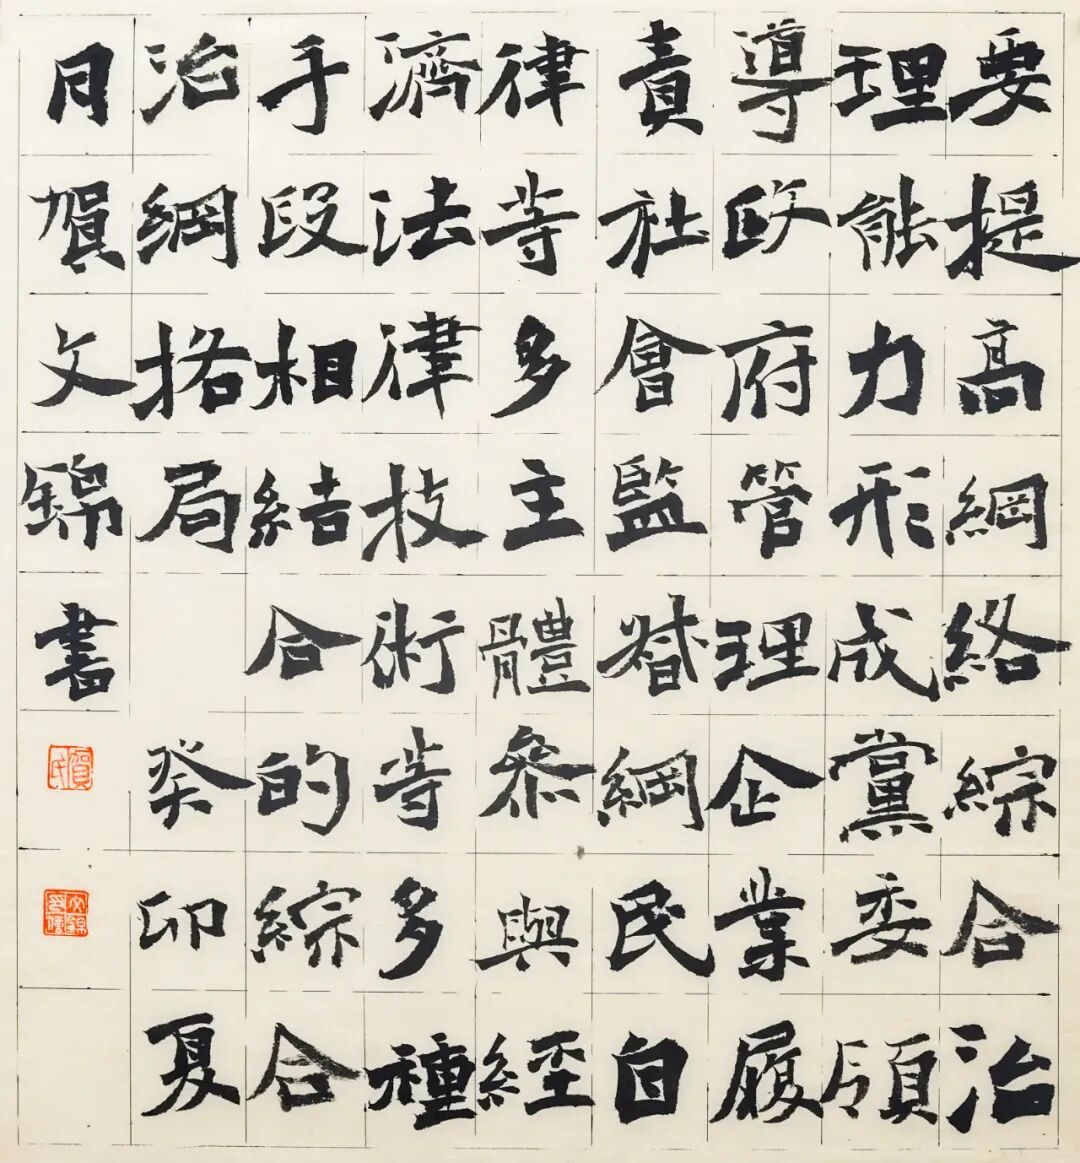 要提高網絡綜合治
理能力形成黨委領
導政府管理企業履
責社會監督網民自
律等多主體參與經
濟法律技術等多種
手段相結合的綜合
治網格局 癸卯夏
月賀文錦書
賀氏